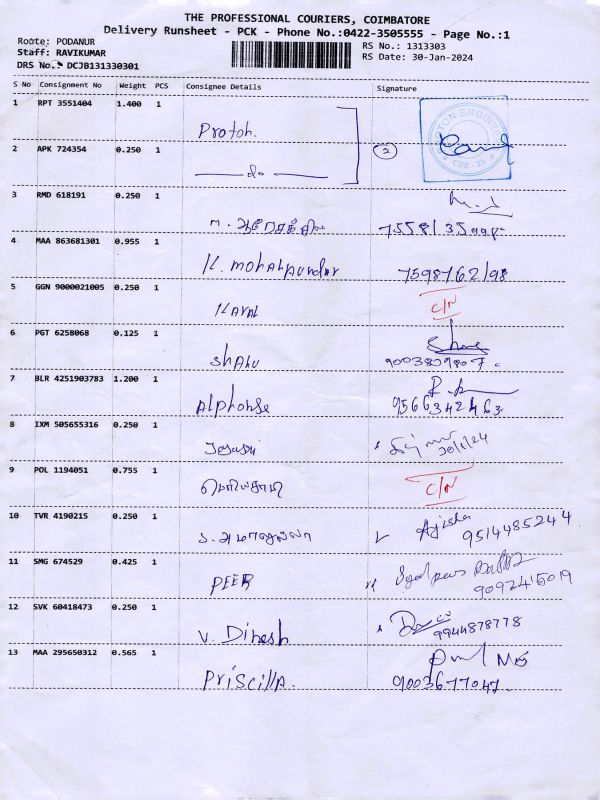 THE PROFESSIONAL COURIERS, COIMBATORE
Delivery Runsheet - PCK - Phone No.:0422-3505555 - Page No.:1
Route: PODANUR
Staff: RAVIKUMAR
DRS No.: DCJB131330301
RS No.: 1313303
RS Date: 30-Jan-2024
S No Consignment No Weight PCS Consignee Details Signature
1 RPT 3551404 1.400 1
Proton.
2 APK 724354 0.250 1
do 2
3 RMD 618191 0.250 1
4 MAA 863681301 0.955 1
K. 7598762198
5 GGN 9000021005 0.250 1
C/N
6 PGT 6258068 0.125 1
Shalu 9003809807
7 BLR 4251903783 1.200 1
Alphonse 9566342463
8 IXM 505655316 0.250 1
30/1/24
9 POL 1194051 0.755 1
C/N
10 TVR 4190215 0.250 1
Ajisha
9514485244
11 SMG 674529 0.425 1
PEER
12 SVK 60418473 0.250 1
V. Dinesh 9944878778
13 MAA 295650312 0.565 1
Priscilla. 9003677047